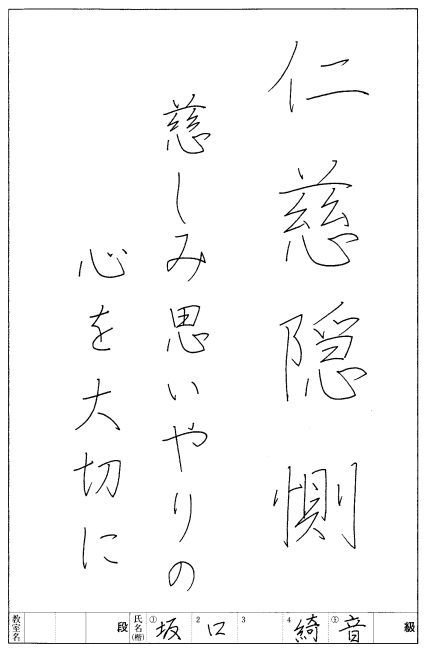 仁慈隠惻
慈しみ思いやりの
心を大切に
級
⑤音
4綺
3
2口
①坂
氏名(楷)
段
教室名